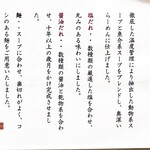 徹底した温度管理により抽出した動物系ス
ープと魚介系スープをブレンドし、奥深い
らーめんに仕上げました。
塩だれ・・数種類の厳選した塩を合わせ、
丸みのある味わいにしました。
醤油だれ・・数種類の醤油と乾物系を合わ
せ、十年以上の歳月をかけ完成させまし
た。
麺・・スープに合わせ、歯切れがよく、コ
シのある麺をご用意いたしました。